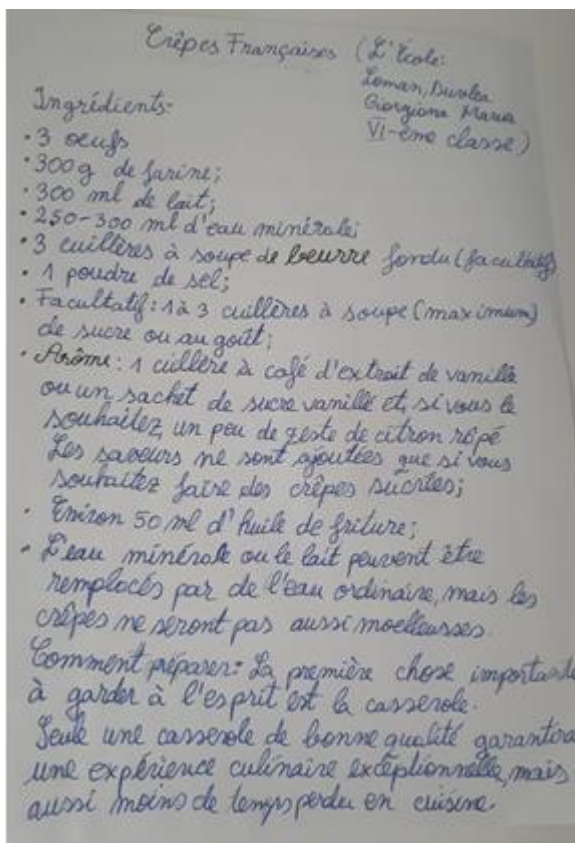 Crêpes Françaises (L'École:
Loman, Duvlea
Giorgiana Maria
VI-ème classe)
Ingrédients:
• 3 oeufs
• 300g de farine;
• 300 ml de lait;
• 250-300 ml d'eau minérale;
• 3 cuillères à soupe de beurre fondu (facultatif)
• 1 poudre de sel;
• Facultatif: 1 à 3 cuillères à soupe (maximum)
de sucre ou au goût;
• Arôme: 1 cuillère à café d'extrait de vanille
ou un sachet de sucre vanillé et, si vous le
souhaitez, un peu de zeste de citron râpé
Les saveurs ne sont ajoutées que si vous
souhaitez faire des crêpes sucrées;
• Environ 50 ml d'huile de friture;
• L'eau minérale ou le lait peuvent être
remplacés par de l'eau ordinaire, mais les
crêpes ne seront pas aussi moelleusses.
Comment préparer: La première chose importante
à garder à l'esprit est la casserole.
Seule une casserole de bonne qualité garantira
une expérience culinaire exceptionnelle, mais
aussi moins de temps perdu en cuisine.